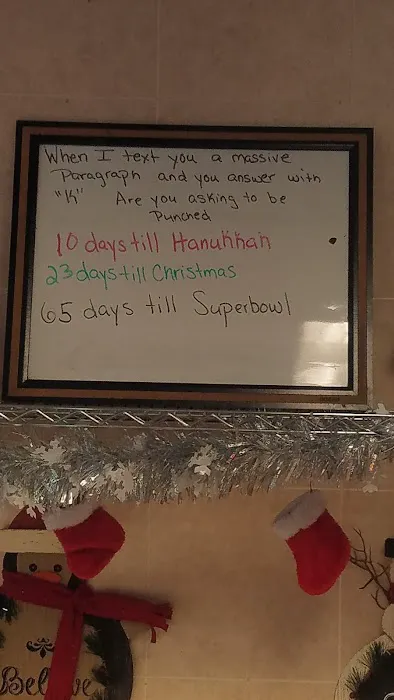 When I text you a massive
Paragraph and you answer with
"K" Are you asking to be
Punched
10 days till Hanukkah
23 days till Christmas
65 days till Superbowl
Believe